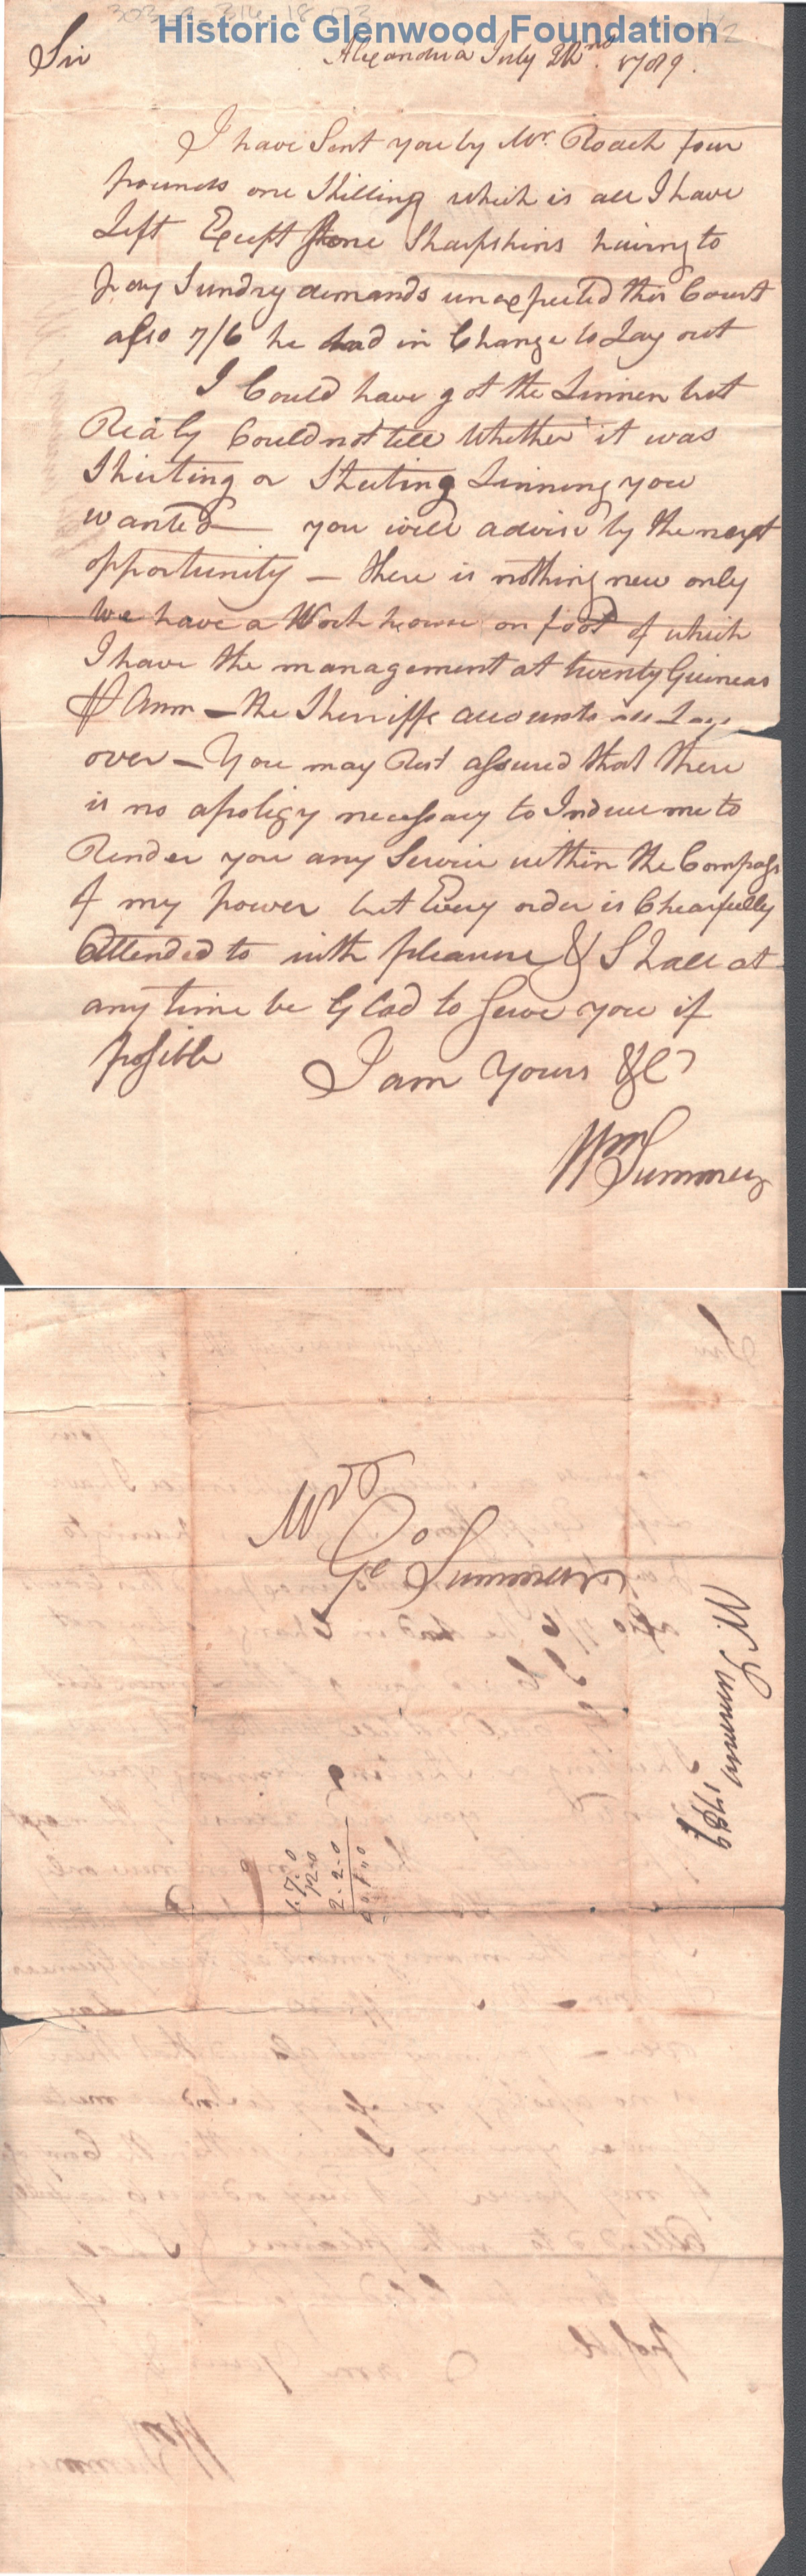 Historic Glenwood Foundation
Sir
Alexandria July 22nd. 1789.
I have Sent you by Mr. Roach four
pounds one Shilling which is all I have
Left Exept Some Sharpshins having to
pay Sundry demands unexpected this Court
also 7/6 he had in Change to Lay out
I Could have got the Linnen but
Realy Could not tell Whether it was
Shirting or Sheeting Linning you
wanted — you will advise by the next
opportunity — there is nothing new only
we have a Work house on foot of which
I have the management at twenty Guineas
⅌ Ann — the Sherriffs accounts all Lays
over — You may Rest assured that there
is no apoligy necessary to Induce me to
Render you any Service within the Compass
of my power but Every order is Chearfully
Attended to with pleasure & Shall at
any time be Glad to Serve you if
possible I am Yours &C
Wm Summers
Mr
Geo Summers
Wm Summers 1789
1.7.0
12.0
2.2.0